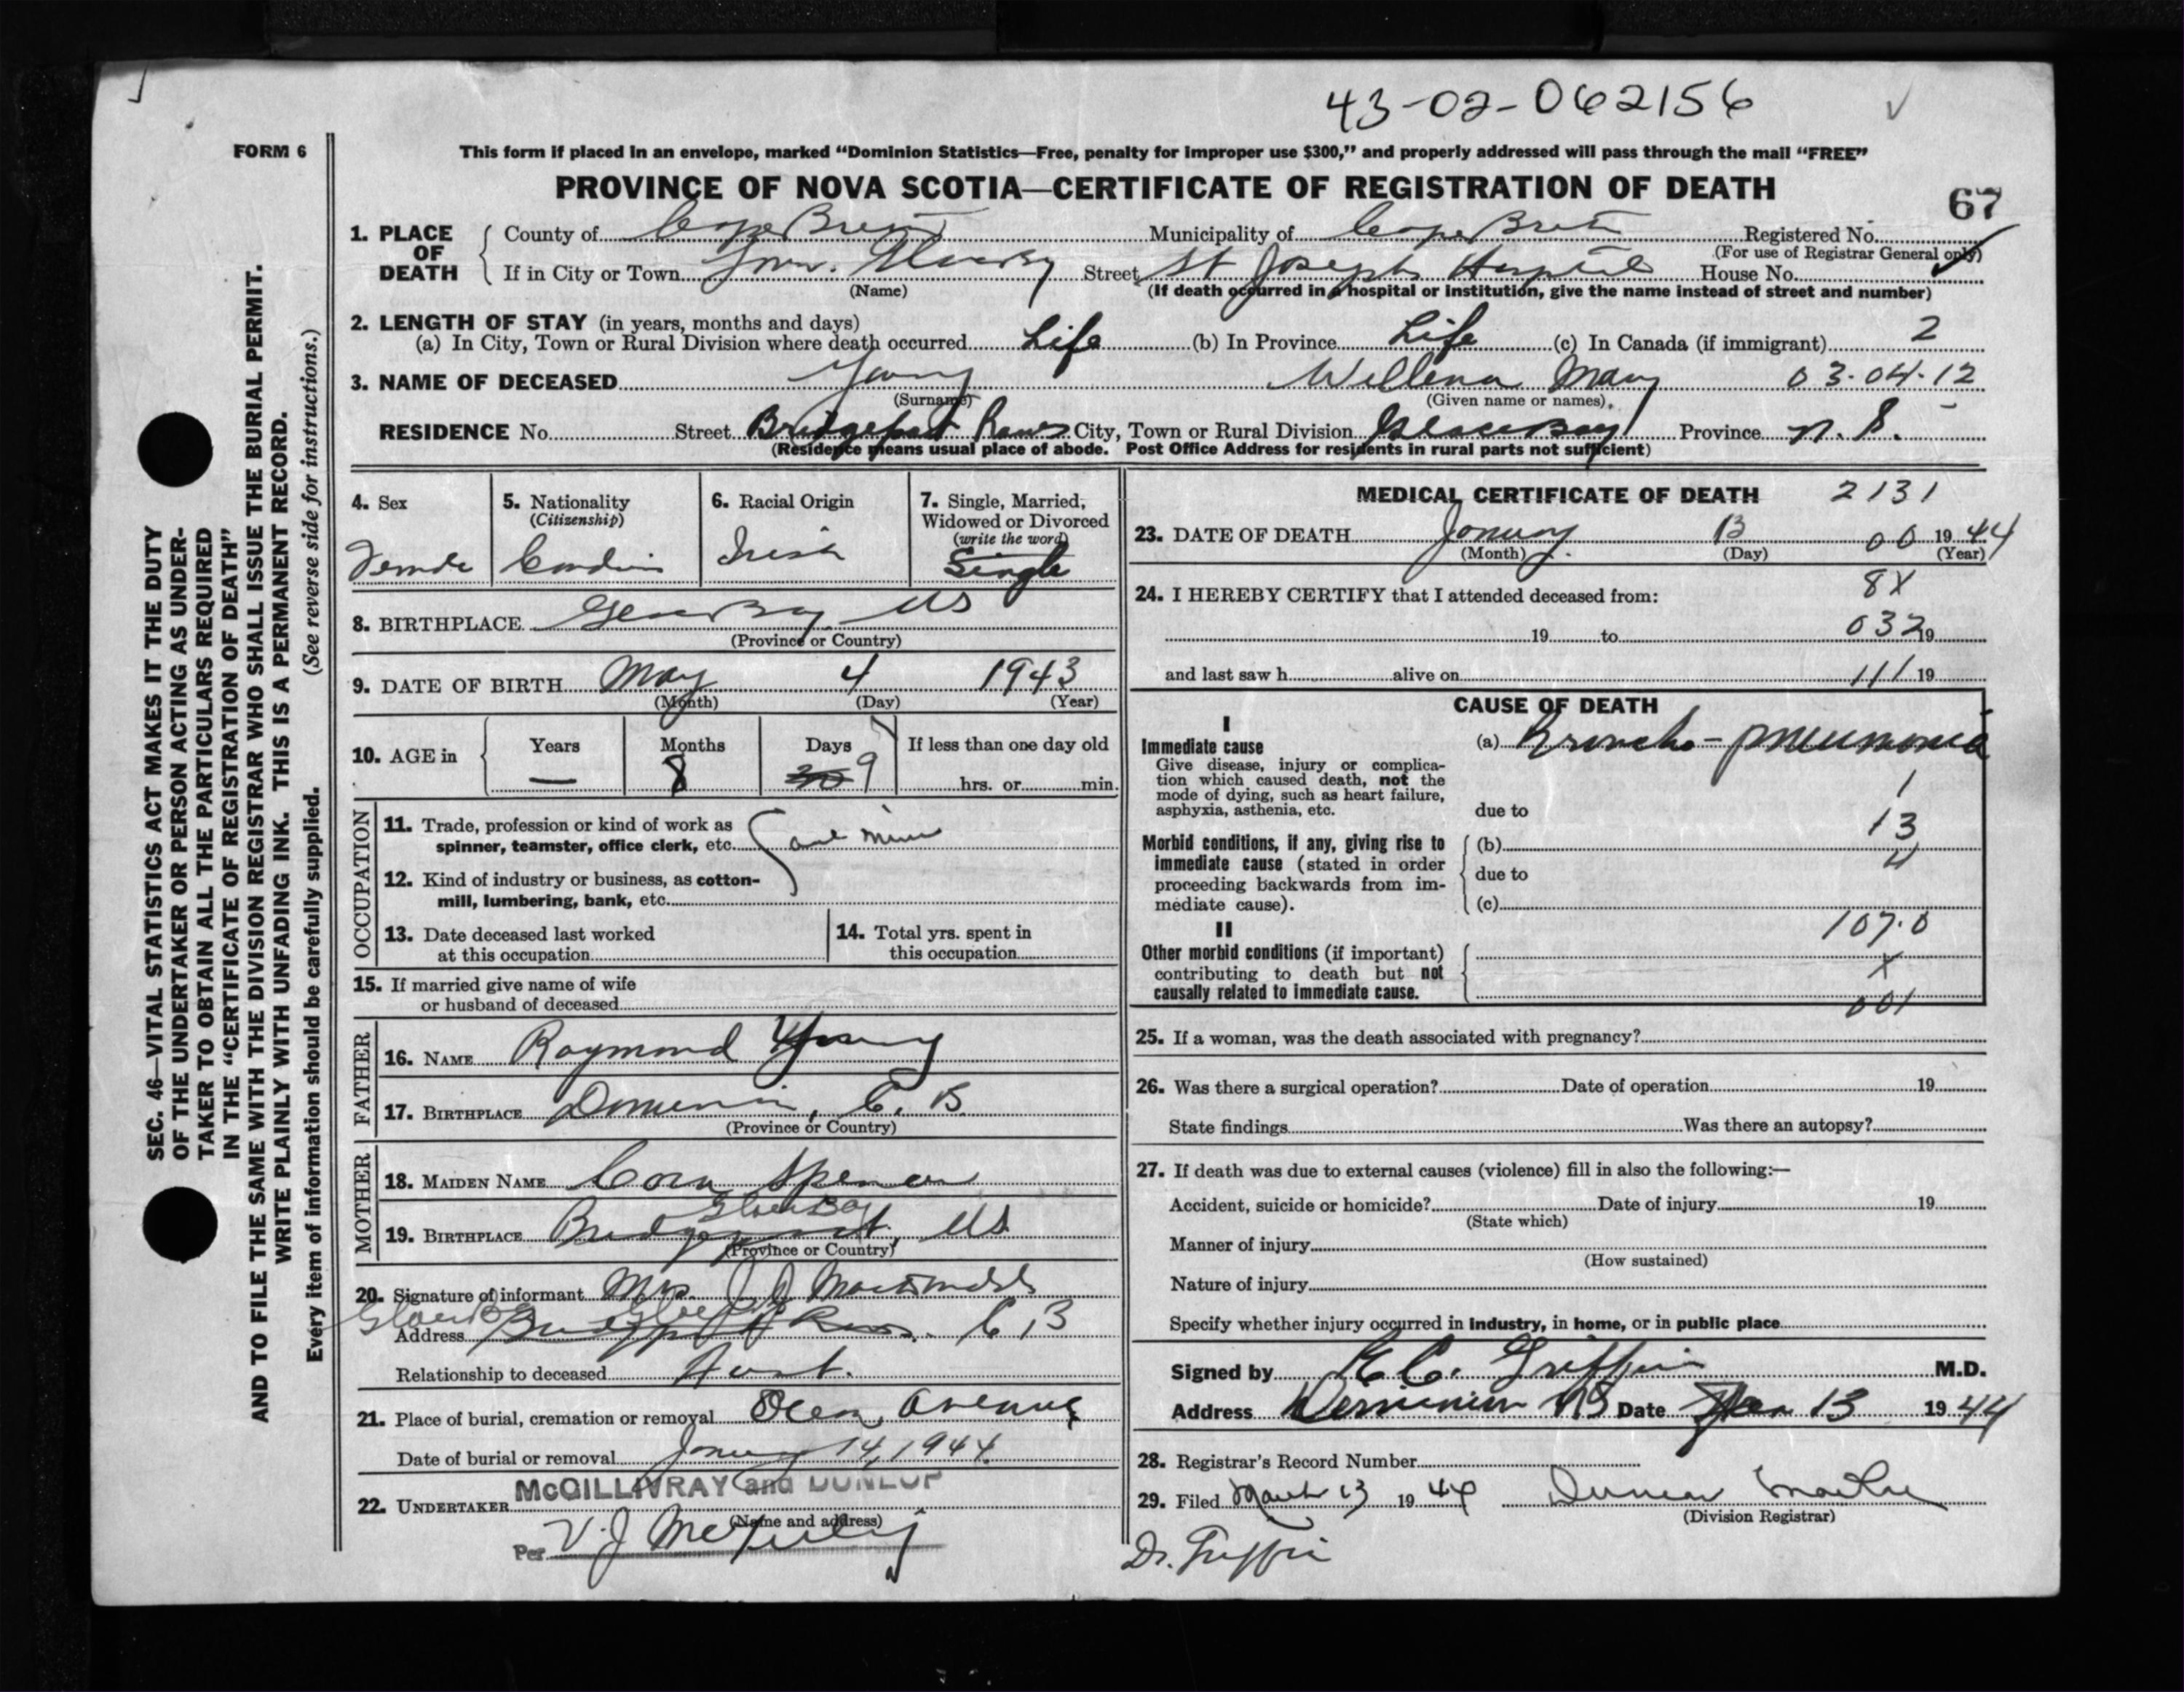 43-02-062156
FORM 6
This form if placed in an envelope, marked “Dominion Statistics—Free, penalty for improper use $300,” and properly addressed will pass through the mail “FREE”
PROVINCE OF NOVA SCOTIA—CERTIFICATE OF REGISTRATION OF DEATH
67
1. PLACE OF DEATH
County of Cape Breton Municipality of Cape Breton Registered No.
(For use of Registrar General only)
If in City or Town Town Glace Bay Street St Josephs Hospital House No.
(Name) (If death occurred in a hospital or institution, give the name instead of street and number)
2. LENGTH OF STAY (in years, months and days)
(a) In City, Town or Rural Division where death occurred Life (b) In Province Life (c) In Canada (if immigrant) 2
3. NAME OF DECEASED Young Willena Mary 03-04-12
(Surname) (Given name or names)
RESIDENCE No. Street Bridgeport Rows City, Town or Rural Division Glace Bay Province N. S.
(Residence means usual place of abode. Post Office Address for residents in rural parts not sufficient)
4. Sex
Female
5. Nationality
(Citizenship)
Canadian
6. Racial Origin
Irish
7. Single, Married,
Widowed or Divorced
(write the word)
Single
8. BIRTHPLACE Glace Bay NS
(Province or Country)
9. DATE OF BIRTH May 4 1943
(Month) (Day) (Year)
10. AGE in
Years Months Days If less than one day old
— 8 9 hrs. or min.
OCCUPATION
11. Trade, profession or kind of work as
spinner, teamster, office clerk, etc.
12. Kind of industry or business, as cotton-
mill, lumbering, bank, etc.
13. Date deceased last worked
at this occupation
14. Total yrs. spent in
this occupation
15. If married give name of wife
or husband of deceased
FATHER
16. NAME Raymond Young
17. BIRTHPLACE Dominion, C. B.
(Province or Country)
MOTHER
18. MAIDEN NAME Cora Spencer
Glace Bay
19. BIRTHPLACE Bridgeport, NS
(Province or Country)
20. Signature of informant Mrs. J D
Glace Bay
Address Bridgeport Rows. C, B
Relationship to deceased Aunt.
21. Place of burial, cremation or removal Ocean Avenue
Date of burial or removal January 14, 1944
22. UNDERTAKER McGILLIVRAY and DUNLOP
(Name and address)
Per V. J.
MEDICAL CERTIFICATE OF DEATH 2131
23. DATE OF DEATH January 13 00 1944
(Month) (Day) (Year)
24. I HEREBY CERTIFY that I attended deceased from: 8X
19 to 032 19
and last saw h alive on 111 19
CAUSE OF DEATH
I
Immediate cause
Give disease, injury or complica-
tion which caused death, not the
mode of dying, such as heart failure,
asphyxia, asthenia, etc.
(a) Broncho-pneumonia
1
due to
13
Morbid conditions, if any, giving rise to
immediate cause (stated in order
proceeding backwards from im-
mediate cause).
(b)
4
due to
(c)
107.0
II
Other morbid conditions (if important)
contributing to death but not
causally related to immediate cause.
X
001
25. If a woman, was the death associated with pregnancy?
26. Was there a surgical operation? Date of operation 19
State findings Was there an autopsy?
27. If death was due to external causes (violence) fill in also the following:—
Accident, suicide or homicide? Date of injury 19
(State which)
Manner of injury
(How sustained)
Nature of injury
Specify whether injury occurred in industry, in home, or in public place
Signed by Griffin M.D.
Address Dominion NS Date Jan 13 1944
28. Registrar's Record Number
29. Filed March 13 1944 Duncan
(Division Registrar)
Dr. Griffin
SEC. 46—VITAL STATISTICS ACT MAKES IT THE DUTY
OF THE UNDERTAKER OR PERSON ACTING AS UNDER-
TAKER TO OBTAIN ALL THE PARTICULARS REQUIRED
IN THE “CERTIFICATE OF REGISTRATION OF DEATH”
AND TO FILE THE SAME WITH THE DIVISION REGISTRAR WHO SHALL ISSUE THE BURIAL PERMIT.
WRITE PLAINLY WITH UNFADING INK. THIS IS A PERMANENT RECORD.
Every item of information should be carefully supplied. (See reverse side for instructions.)